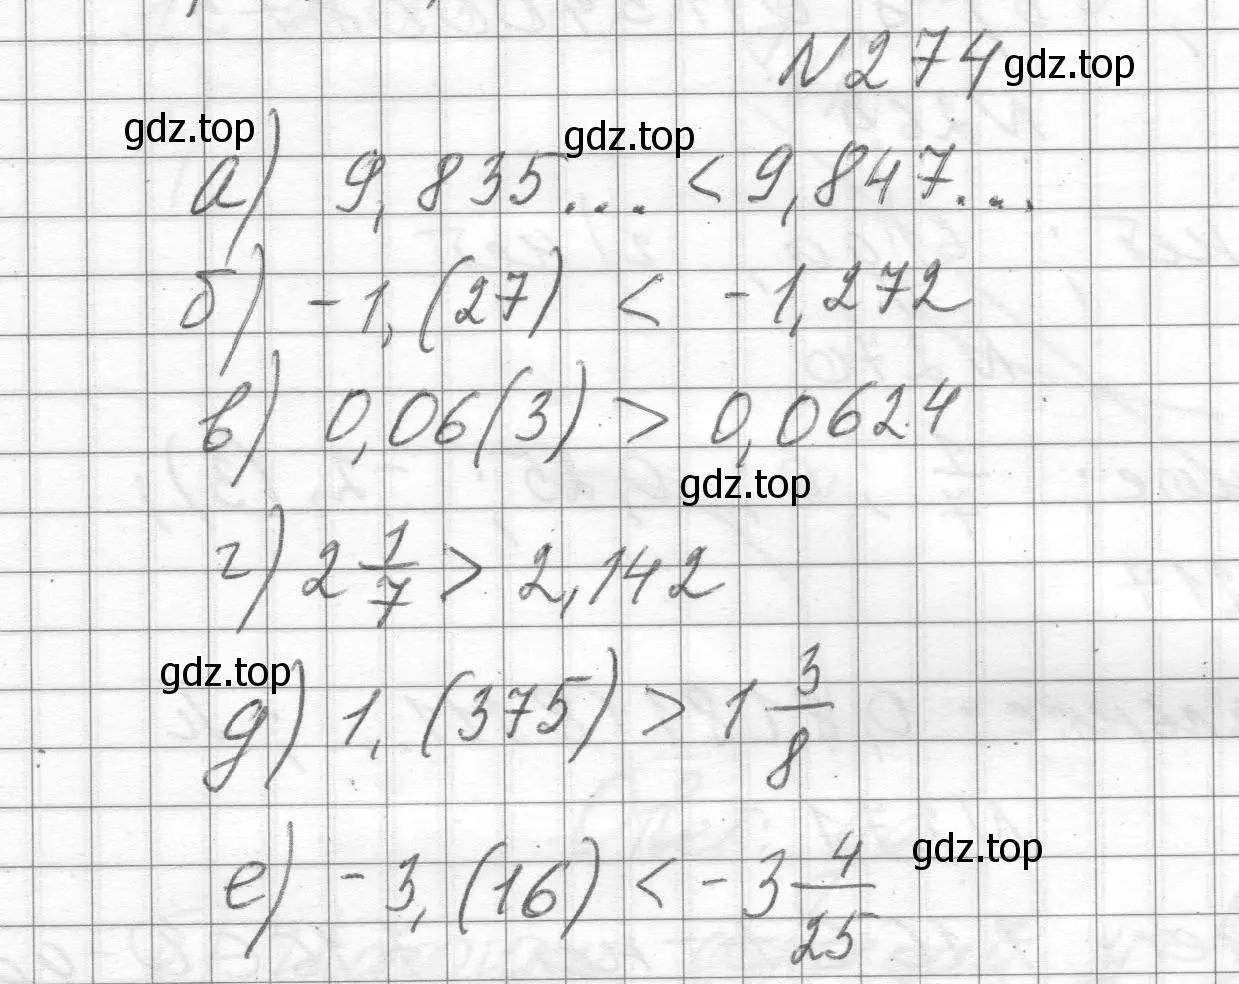 N 274 gdz.top
gdz.top gdz.top
а) 9,835... < 9,847...
б) -1,(27) < -1,272
в) 0,06(3) > 0,0624
gdz.top
г) 2 1/7 > 2,142
gdz.top
д) 1,(375) > 1 3/8
gdz.top
е) -3,(16) < -3 4/25